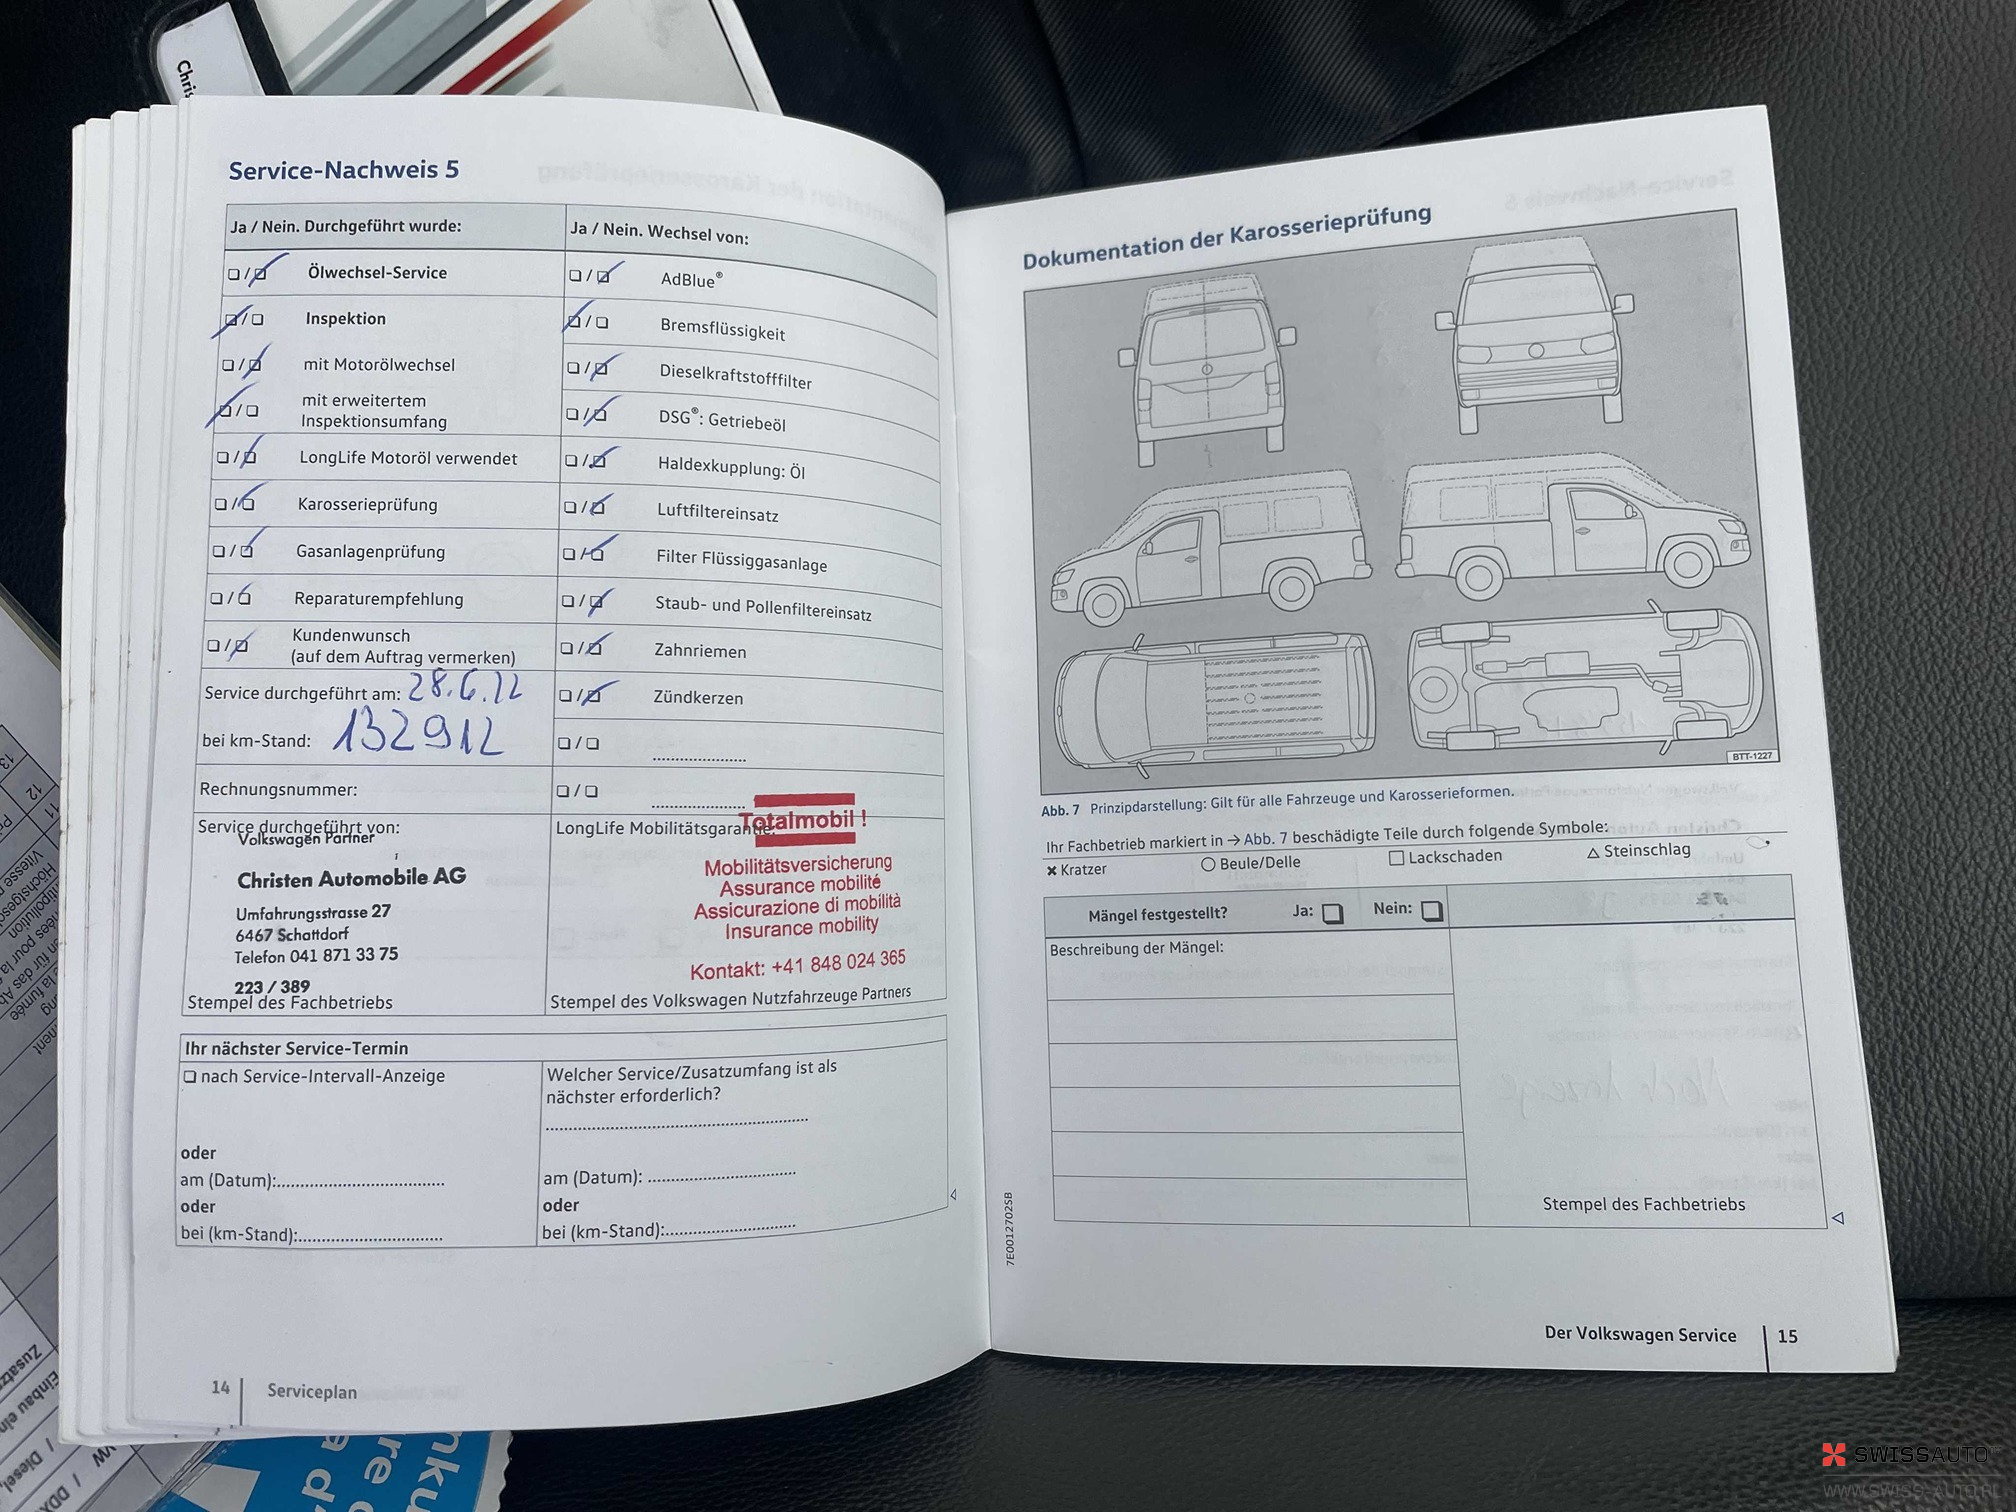 Chris
Service-Nachweis 5
Ja / Nein. Durchgeführt wurde:
Ja / Nein. Wechsel von:
❏ / ❏ Ölwechsel-Service
❏ / ❏ AdBlue®
❏ / ❏ Inspektion
❏ / ❏ Bremsflüssigkeit
❏ / ❏ mit Motorölwechsel
❏ / ❏ Dieselkraftstofffilter
❏ / ❏ mit erweitertem
Inspektionsumfang
❏ / ❏ DSG®: Getriebeöl
❏ / ❏ LongLife Motoröl verwendet
❏ / ❏ Haldexkupplung: Öl
❏ / ❏ Karosserieprüfung
❏ / ❏ Luftfiltereinsatz
❏ / ❏ Gasanlagenprüfung
❏ / ❏ Filter Flüssiggasanlage
❏ / ❏ Reparaturempfehlung
❏ / ❏ Staub- und Pollenfiltereinsatz
❏ / ❏ Kundenwunsch
(auf dem Auftrag vermerken)
❏ / ❏ Zahnriemen
Service durchgeführt am: 28.6.22
❏ / ❏ Zündkerzen
bei km-Stand: 132912
❏ / ❏ ....................
Rechnungsnummer:
❏ / ❏ ....................
Service durchgeführt von:
Volkswagen Partner
Christen Automobile AG
Umfahrungsstrasse 27
6467 Schattdorf
Telefon 041 871 33 75
223 / 389
Stempel des Fachbetriebs
LongLife Mobilitätsgarantie:
Totalmobil !
Mobilitätsversicherung
Assurance mobilité
Assicurazione di mobilità
Insurance mobility
Kontakt: +41 848 024 365
Stempel des Volkswagen Nutzfahrzeuge Partners
Ihr nächster Service-Termin
❏ nach Service-Intervall-Anzeige
oder
am (Datum):....................
oder
bei (km-Stand):....................
Welcher Service/Zusatzumfang ist als
nächster erforderlich?
....................
am (Datum): ....................
oder
bei (km-Stand):....................
14 Serviceplan
Dokumentation der Karosserieprüfung
BTT-1227
Abb. 7 Prinzipdarstellung: Gilt für alle Fahrzeuge und Karosserieformen.
Ihr Fachbetrieb markiert in → Abb. 7 beschädigte Teile durch folgende Symbole:
✖ Kratzer ○ Beule/Delle □ Lackschaden △ Steinschlag
Mängel festgestellt? Ja: ❏ Nein: ❏
Beschreibung der Mängel:
Stempel des Fachbetriebs
7E0012702SB
Der Volkswagen Service 15
SWISSAUTO
WWW.SWISS-AUTO.PL